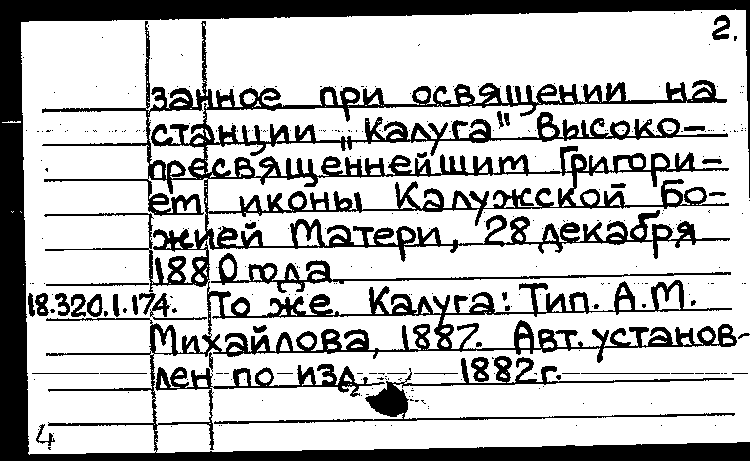 2.
занное при освящении на
станции „Калуга" Высоко-
пресвященнейшим Григори-
ем иконы Калужской Бо-
жией Матери, 28 декабря
1880 года.
18.320.1.174. То же. Калуга: Тип. А.М.
Михайлова, 1887. Авт. установ-
лен по изд. 1882 г.
4